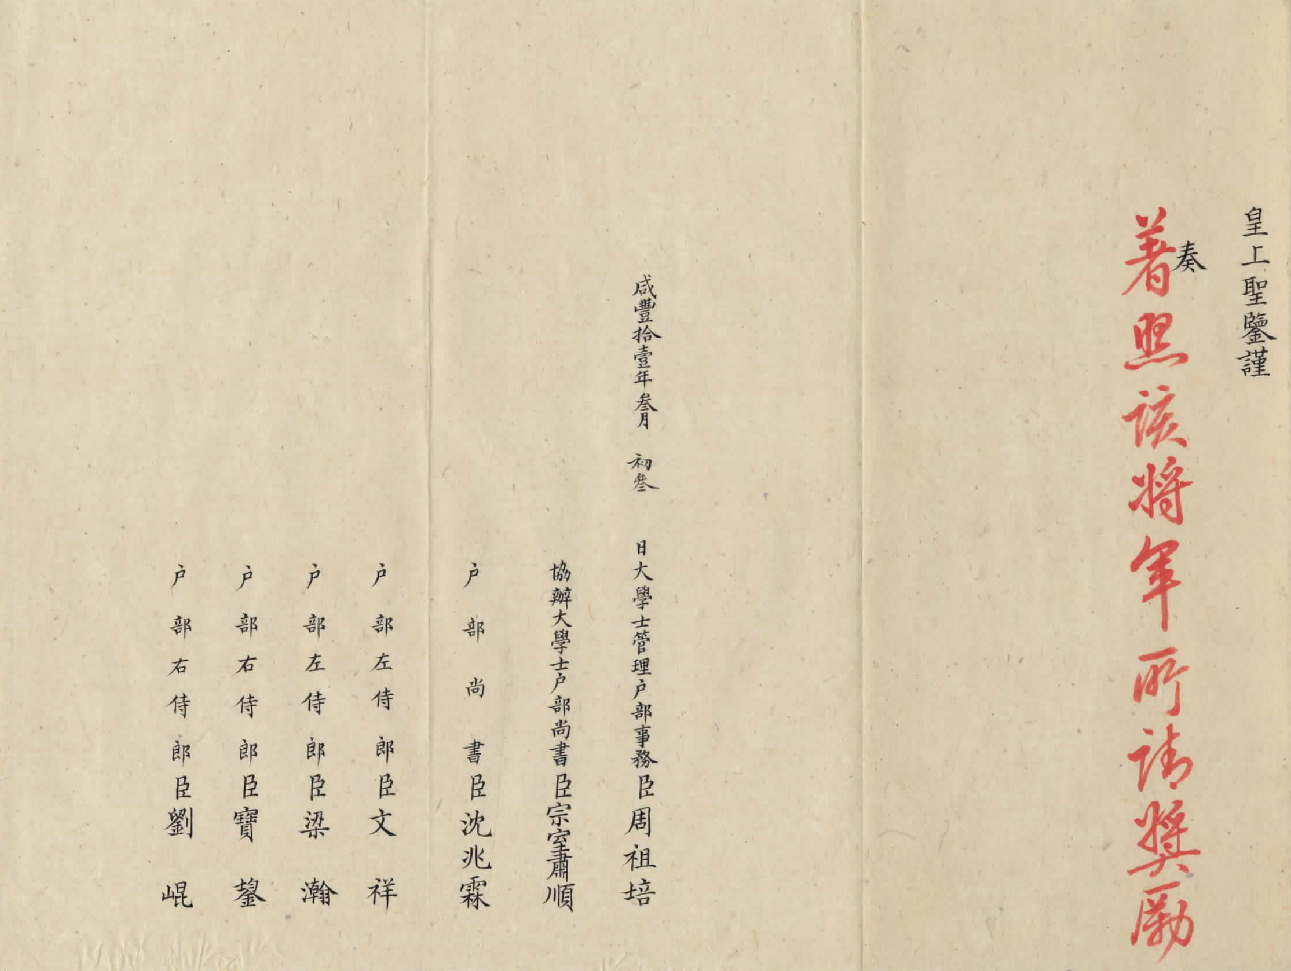 皇上聖鑒謹
奏
著照該將軍所請奬勵
咸豐拾壹年叁月初叁日大學士管理户部事務臣周祖培
協辦大學士户部尚書臣宗室肅順
户部尚書臣沈兆霖
户部左侍郎臣文祥
户部左侍郎臣梁瀚
户部右侍郎臣寶鋆
户部右侍郎臣劉崐